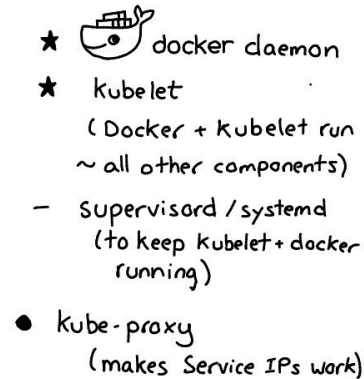 ★ docker daemon
★ kubelet
(Docker + kubelet run
~ all other components)
– supervisord / systemd
(to keep kubelet + docker
running)
● kube-proxy
(makes Service IPs work)